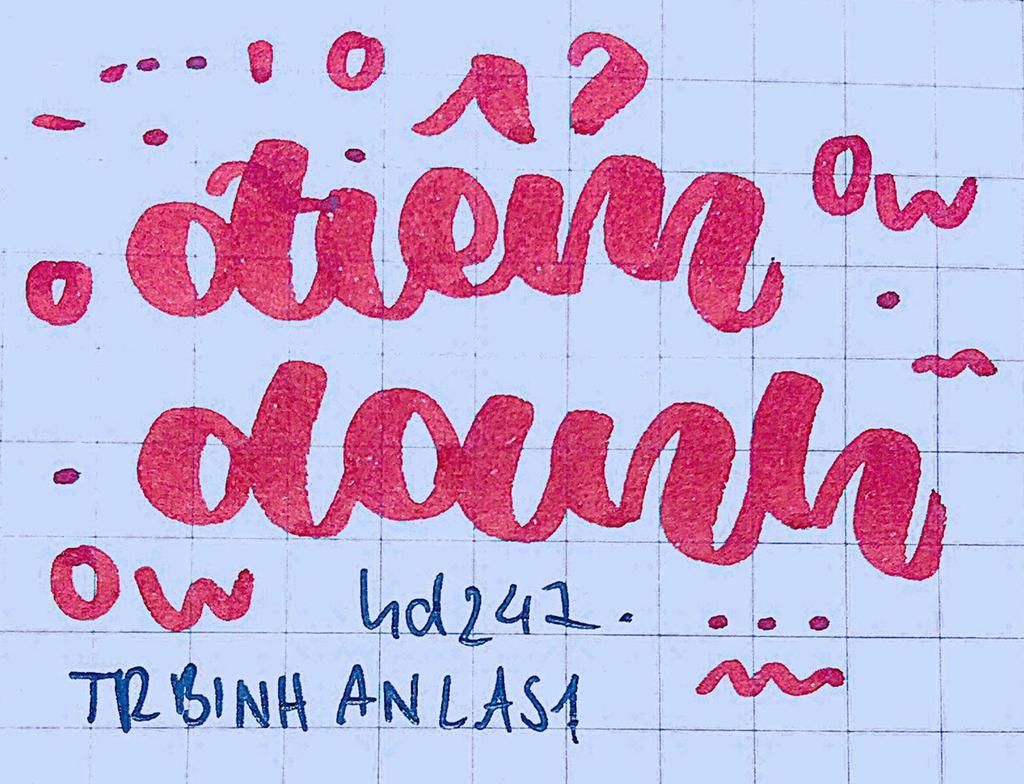 điểm
danh
hd247.
TRBINH AN LAS1